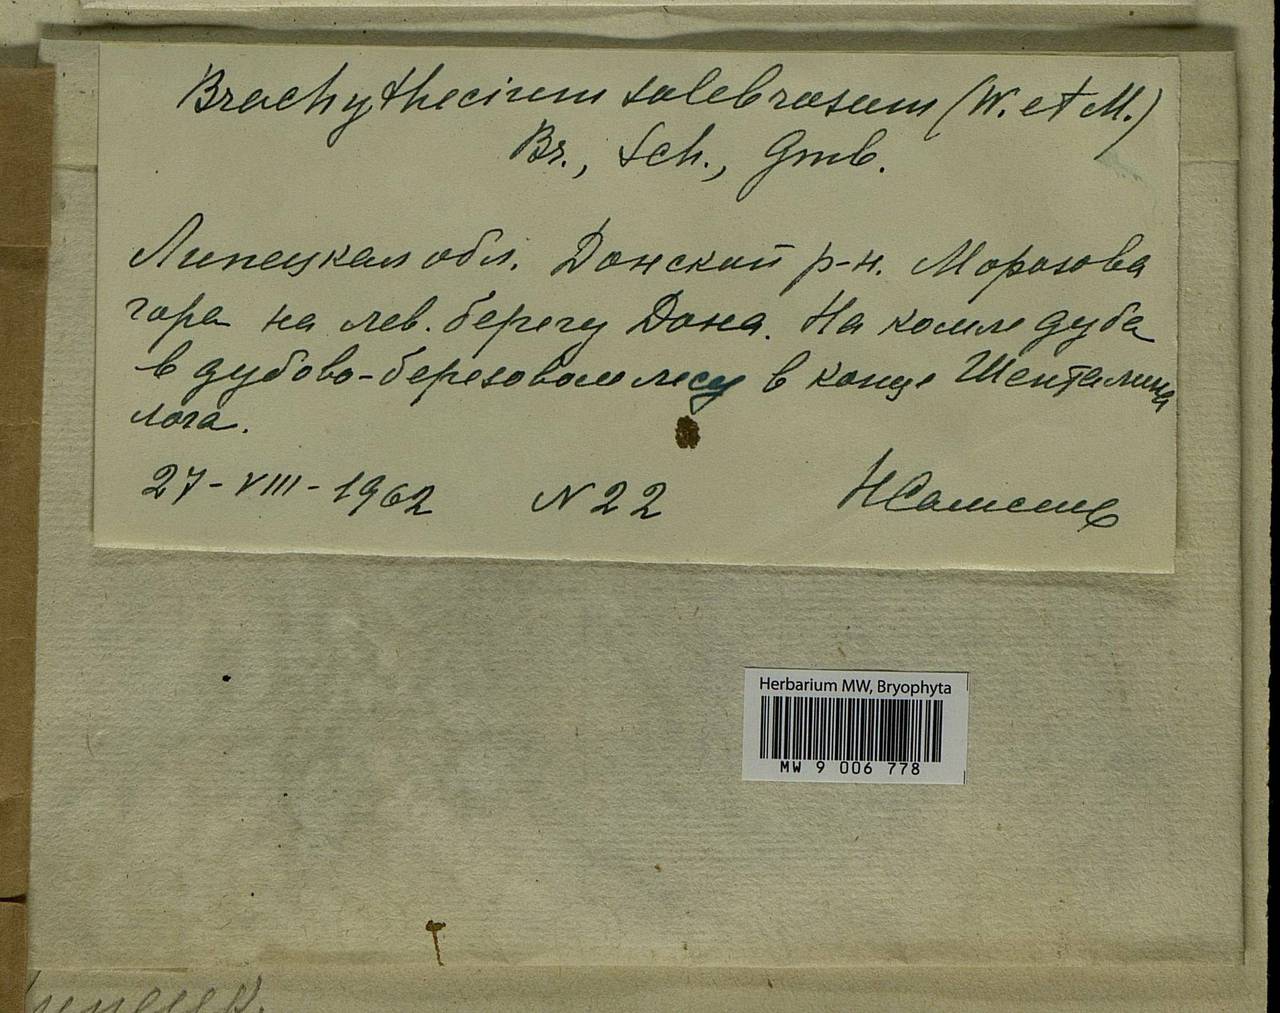 Brachythecium salebrosum (W. et M.)
Br., Sch., Gmb.
Липецкая обл. Донской р-н. Морозова
гора на лев. берегу Дона. На комле дуба
в дубово-березовом лесу в конце Шенталина
лога.
27-VIII-1962 N 22
Herbarium MW, Bryophyta
MW 9 006 778